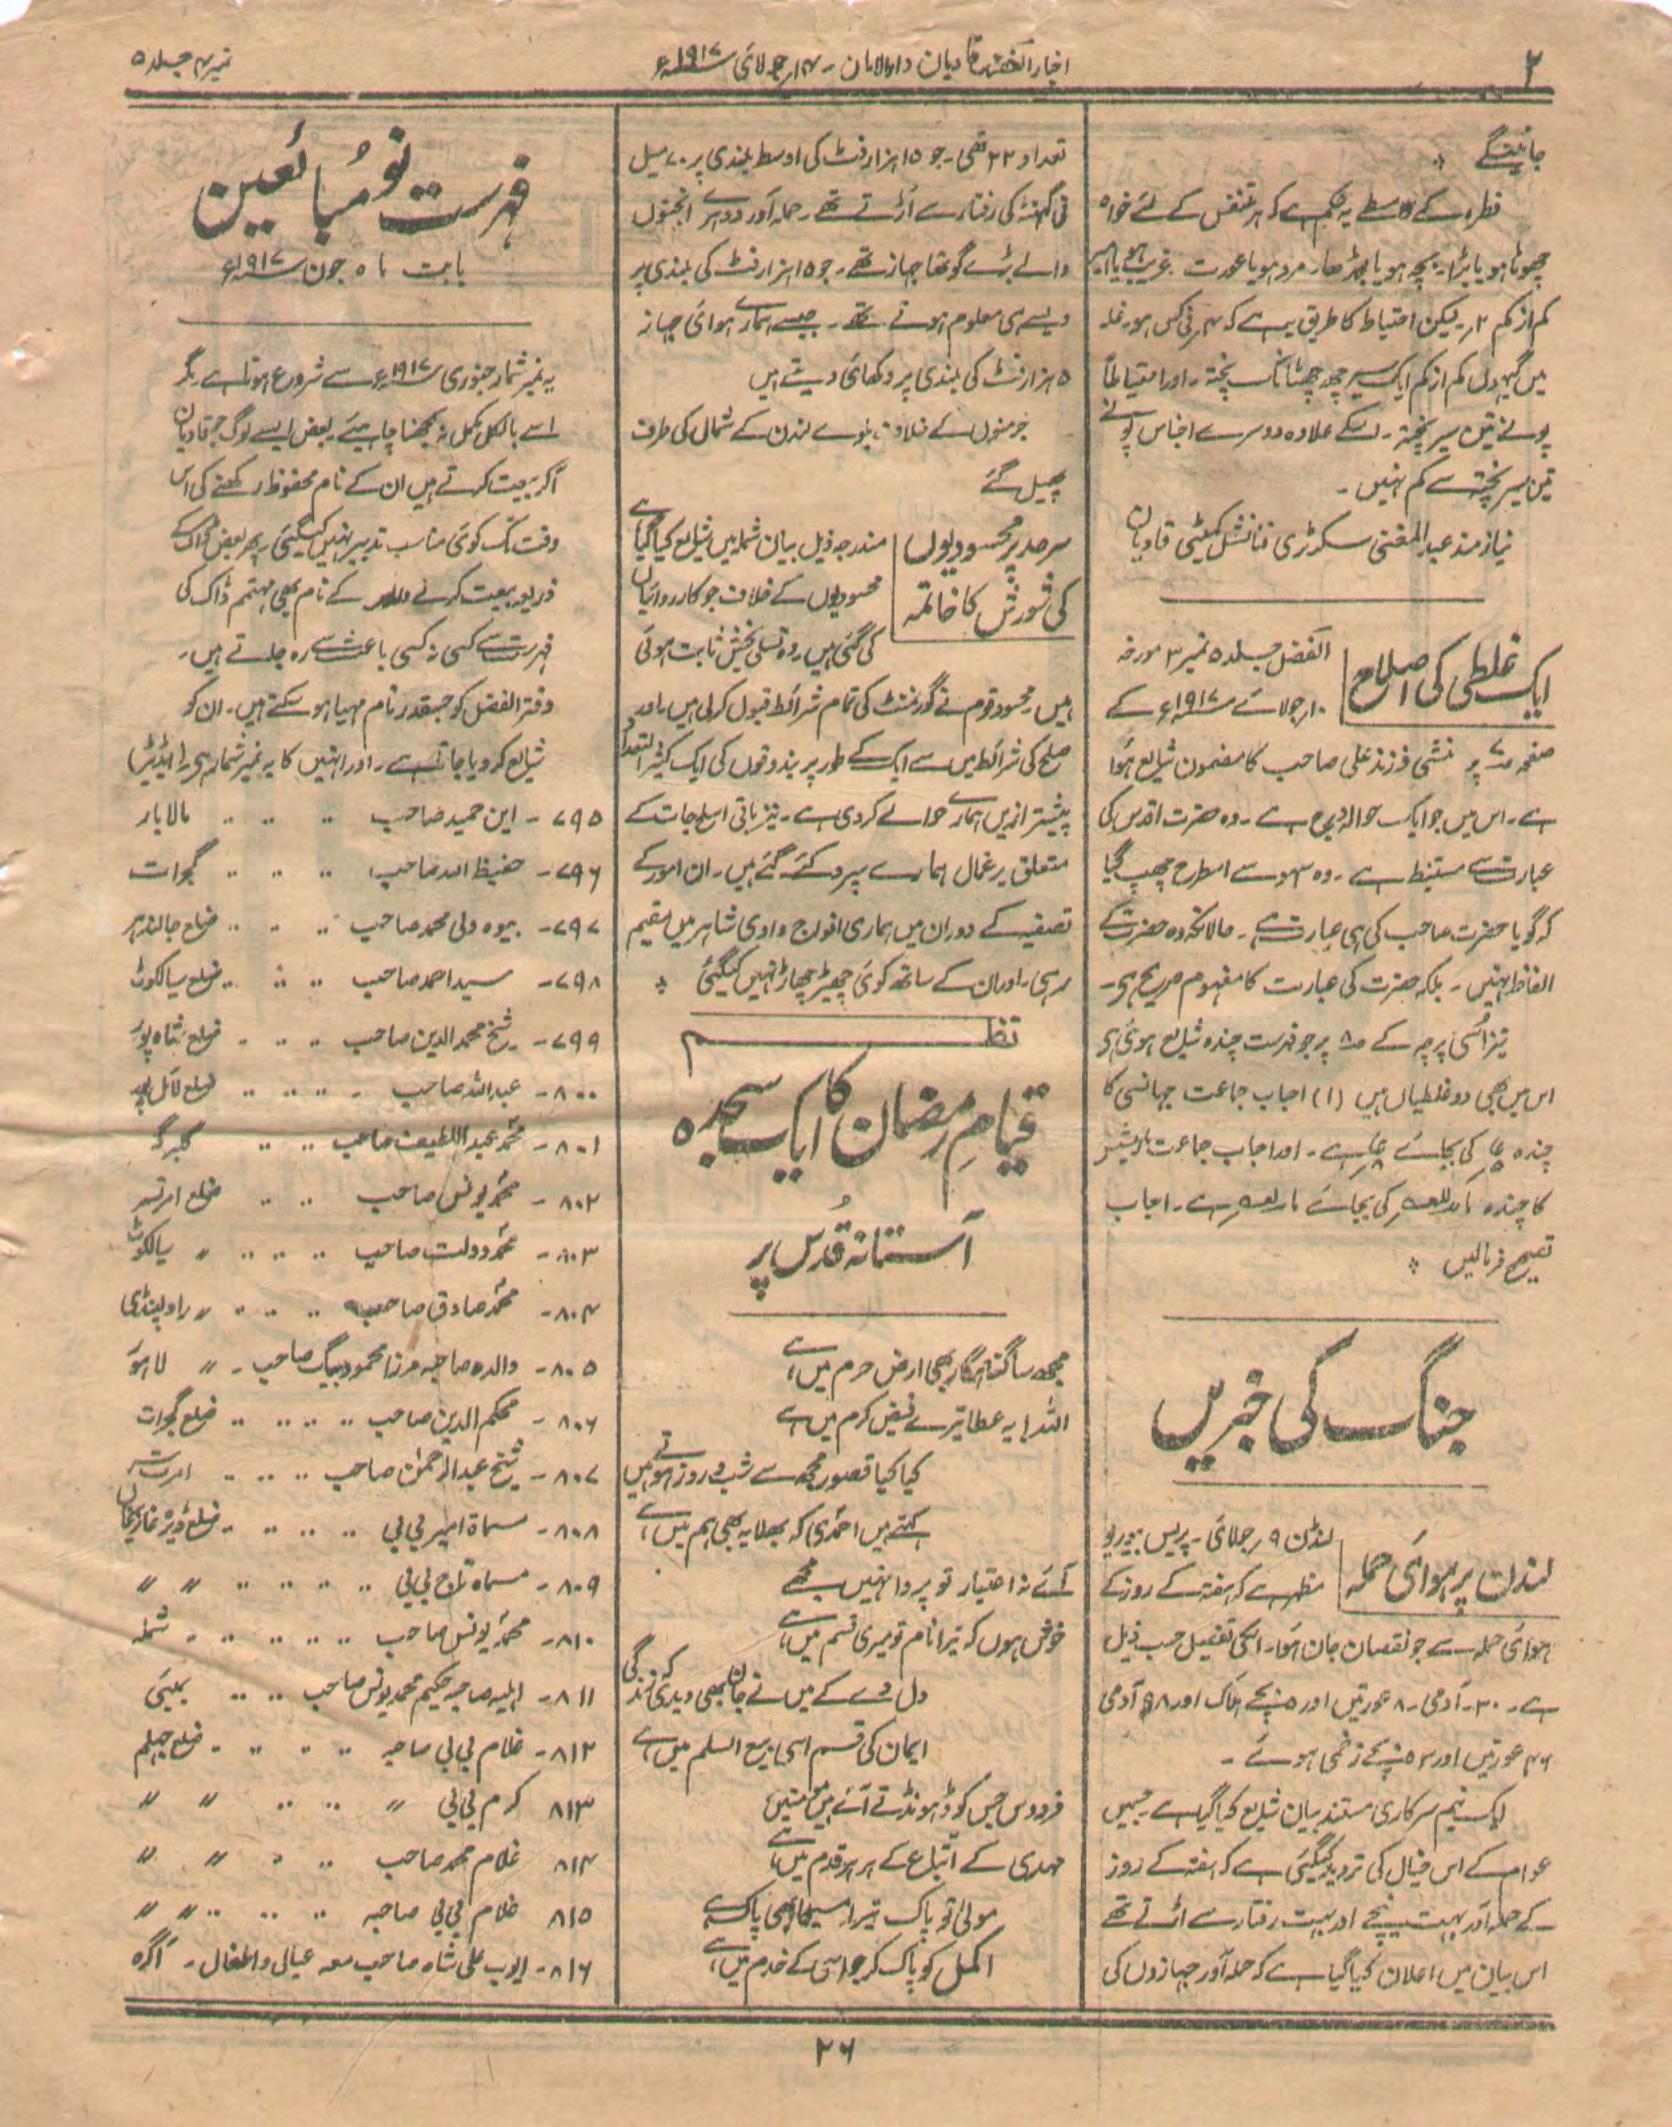 ۲
اخبار الفضل قادیان دارالامان - ۱۴ جولائی ۱۹۱۷ء
نمبر ۴ جلد ۵
جائینگے
فطرہ کے واسطے یہ حکم ہے کہ ہر متنفس کے لئے خواہ
چھوٹا ہو یا بڑا۔ بچہ ہو یا بوڑھا۔ مرد ہو یا عورت۔ غریب ہو یا امیر
کم از کم ۲؍ لیکن احتیاط کا طریق یہ ہے کہ ۴؍ فی کس ہو۔ غلہ
میں گیہوں کم از کم ایک سیر چھ چھٹانک پختہ۔ اور احتیاطاً
پونے تین سیر پختہ۔ اسکے علاوہ دوسرے اجناس پونے
تین سیر پختہ سے کم نہیں۔
نیازمند عبد المغنی سکرٹری فنانشل کمیٹی قادیان
ایک غلطی کی اصلاح
الفضل جلد ۵ نمبر ۳ مورخہ
۱۰ جولائے ۱۹۱۷ء کے
صفحہ ۷ پر منشی فرزند علی صاحب کا مضمون شایع ہوا
ہے۔ اس میں جو ایک حوالہ درج ہے۔ وہ حضرت اقدس کی
عبارت سے مستنبط ہے۔ وہ سہو سے اسطرح چھپ گیا
کہ گویا حضرت صاحب کی ہی عبارت ہے۔ حالانکہ وہ حضرت کے
الفاظ نہیں۔ بلکہ حضرت کی عبارت کا مفہوم صریح ہی۔
نیز اُسی پرچہ کے ص۸ پر جو فہرست چندہ شایع ہوئی ہی
اس میں بھی دو غلطیاں ہیں (۱) احباب جماعت جہانسی کا
چندہ کی بجائے ہے۔ اور احباب جماعت
کا چندہ کی بجائے ہے۔ احباب
تصحیح فرمالیں
جنگ کی خبریں
لندن پر ہوائی حملہ
لنڈن ۹؍ جولائی۔ پریس بیورو
مظہر ہے کہ ہفتہ کے روز کے
ہوائی حملہ سے جو نقصان جان ہوا۔ اسکی تفصیل حسب ذیل
ہے۔ ۳۰۔ آدمی۔ ۸ عورتیں اور ۵ بچے ہلاک اور ۹۸ آدمی
۴۶ عورتیں اور ۵۳ بچے زخمی ہوئے۔
ایک نیم سرکاری مستند بیان شایع کیا گیا ہے۔ جسمیں
عوام کے اس خیال کی تردید کیگئی ہے کہ ہفتہ کے روز
کے حملہ آور بہت نیچے اور بہت رفتار سے اڑتے تھے
اس بیان میں اعلان کیا گیا ہے کہ حملہ آور جہازوں کی
تعداد ۲۲ تھی۔ جو ۱۵ ہزار فٹ کی اوسط بلندی پر ۷۰ میل
فی گھنٹہ کی رفتار سے اُڑتے تھے۔ حملہ آور دوہرے انجنوں
والے بڑے گوتھا جہاز تھے۔ جو ۱۵ ہزار فٹ کی بلندی پر
ویسے ہی معلوم ہوتے تھے۔ جیسے ہمارے ہوائی جہاز
۵ ہزار فٹ کی بلندی پر دکھائی دیتے ہیں
جرمنوں کے خلاف بلوے لندن کے شمال کی طرف
پھیل گئے
سرحد پر محسودیوں کی شورش کا خاتمہ
مندرجہ ذیل بیان شملہ میں شایع کیا گیا ہے
محسودیوں کے خلاف جو کارروائیاں
کی گئی ہیں۔ وہ تسلی بخش ثابت ہوئی
ہیں۔ محسود قوم نے گورنمنٹ کی تمام شرائط قبول کر لی ہیں۔ اور
صلح کی شرائط میں سے ایک کے طور پر بندوقوں کی ایک کثیر التعداد
پیشتر ازیں ہمارے حوالے کر دی ہے۔ نیز باقی اسلحہ جات کے
متعلق یرغمال ہمارے سپرد کئے گئے ہیں۔ ان امور کے
تصفیہ کے دوران میں ہماری افواج وادی شاہر میں مقیم
رہی۔ اور ان کے ساتھ کوئی چھیڑ چھاڑ نہیں کیگئی
نظم
قیامِ رمضان کا ایک سجدہ
آستانہ قُدس پر
مجھ سا گناہگار بھی ارض حرم میں ہے
اللہ! یہ عطا تیرے فیض کرم میں ہے
کیا کیا قصور مجھ سے شب و روز ہوتے ہیں
کہتے ہیں احمدی کہ بھلا یہ بھی ہم میں ہے
آئے نہ اعتبار تو پروا نہیں مجھے
خوش ہوں کہ تیرا نام تو میری قسم میں ہے
دل دے کے میں نے جان بھی دیدی کہ زندگی
ایمان کی قسم اسی بیع السلم میں ہے
فردوس جس کو ڈھونڈتے آئے ہیں متقیں
مہدی کے اتباع کے ہر ہر قدم میں ہے
مولیٰ تو پاک تیرا مسیحا بھی پاک ہے
اکمل کو پاک کر جو اسی کے خدم میں ہے
فہرست نومبائعین
بابت ماہ جون ۱۹۱۷ء
یہ نمبر شمار جنوری ۱۹۱۷ء سے شروع ہوتا ہے مگر
اسے بالکل مکمل نہ سمجھنا چاہیئے۔ بعض ایسے لوگ جو قادیان
آکر بیعت کرتے ہیں ان کے نام محفوظ رکھنے کی اس
وقت تک کوئی مناسب تدبیر نہیں کیگئی۔ پھر بعض ڈاک کے
ذریعہ بیعت کرنے والوں کے نام بھی مہتمم ڈاک کی
فہرست سے کسی نہ کسی باعث سے رہ جاتے ہیں۔
دفتر الفضل کو جسقدر نام مہیا ہو سکتے ہیں۔ ان کو
شایع کر دیا جاتا ہے۔ اور انہیں کا یہ نمبر شمار ہی (ایڈیٹر)
۷۹۵ - این حمید صاحب .. .. .. مالابار
۷۹۶ - حفیظ اللہ صاحب .. .. .. گجرات
۷۹۷ - بیوہ ولی محمد صاحب .. .. .. ضلع جالندہر
۷۹۸ - سید احمد صاحب .. .. .. ضلع سیالکوٹ
۷۹۹ - شیخ محمد الدین صاحب .. .. .. ضلع شاہ پور
۸۰۰ - عبد اللہ صاحب .. .. .. ضلع لائل پور
۸۰۱ - محمد عبد اللطیف صاحب .. .. گلبرگہ
۸۰۲ - محمد یونس صاحب .. .. ضلع امرتسر
۸۰۳ - محمد دولت صاحب .. .. .. 〃 سیالکوٹ
۸۰۴ - محمد صادق صاحب .. .. .. 〃 راولپنڈی
۸۰۵ - والدہ صاحبہ مرزا محمود بیگ صاحب - 〃 لاہور
۸۰۶ - محکم الدین صاحب .. .. .. ضلع گجرات
۸۰۷ - شیخ عبد الرحمٰن صاحب .. .. .. امرتسر
۸۰۸ - مسماۃ امیر بی بی .. .. .. ضلع ڈیرہ غازیخاں
۸۰۹ - مسماۃ تاج بی بی .. .. .. .. 〃 〃
۸۱۰ - محمد یونس صاحب .. .. .. .. شملہ
۸۱۱ - اہلیہ صاحبہ حکیم محمد یونس صاحب .. .. بمبئی
۸۱۲ - غلام بی بی صاحبہ .. .. .. ضلع جہلم
۸۱۳ کرم بی بی 〃 .. .. .. 〃 〃
۸۱۴ غلام محمد صاحب .. .. 〃 〃
۸۱۵ غلام بی بی صاحبہ .. .. .. 〃 〃
۸۱۶ - ایوب علی شاہ صاحب معہ عیال و اطفال - آگرہ
۲۶